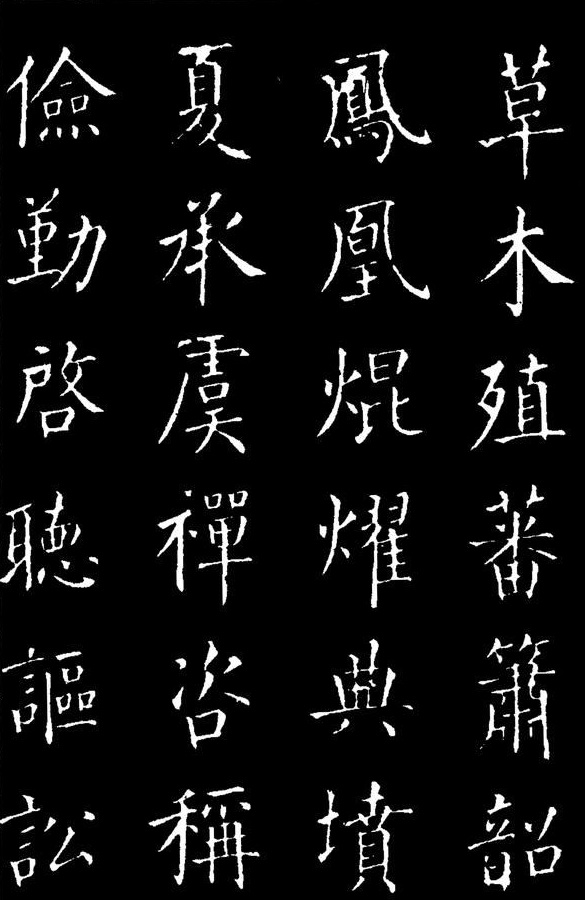 草木殖蕃簫韶
鳳凰焜燿典墳
夏承虞禪咨稱
儉勤啓聽謳訟